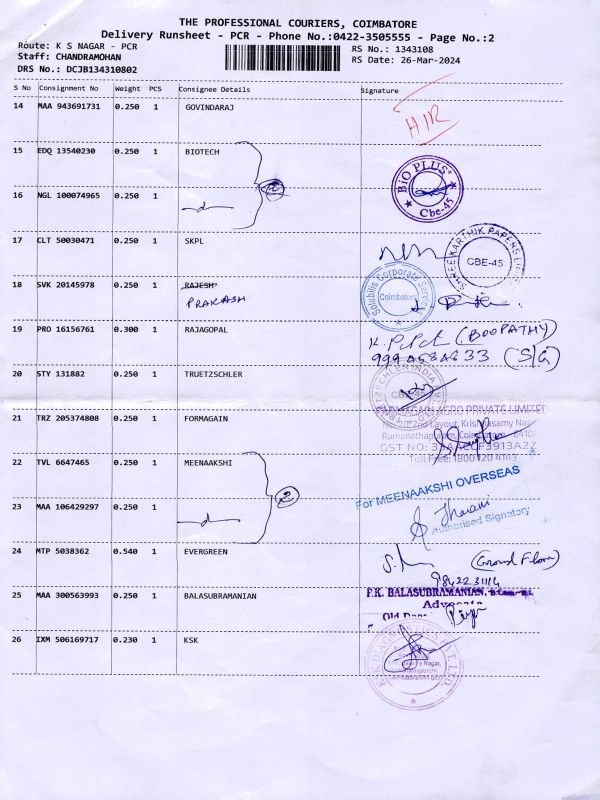 THE PROFESSIONAL COURIERS, COIMBATORE
Delivery Runsheet - PCR - Phone No.:0422-3505555 - Page No.:2
Route: K S NAGAR - PCR
RS No.: 1343108
Staff: CHANDRAMOHAN
RS Date: 26-Mar-2024
DRS No.: DCJB134310802
S No Consignment No Weight PCS Consignee Details Signature
14 MAA 943691731 0.250 1 GOVINDARAJ
15 EDQ 13540230 0.250 1 BIOTECH
BIO PLUS
Cbe-45
16 NGL 100074965 0.250 1
17 CLT 50030471 0.250 1 SKPL
SHREE KARTHIK PAPERS LTD
CBE-45
18 SVK 20145978 0.250 1 RAJESH
PRAKASH
Solubilis Corporate Services
Coimbatore
19 PRO 16156761 0.300 1 RAJAGOPAL
(BOOPATHY)
(S/G)
20 STY 131882 0.250 1 TRUETZSCHLER
21 TRZ 205374808 0.250 1 FORMAGAIN
AGRO PRIVATE LIMITED
2nd Layout,
Ramanathapuram,
GST NO:
Toll Free: 1800 120 4143
22 TVL 6647465 0.250 1 MEENAAKSHI
2
For MEENAAKSHI OVERSEAS
23 MAA 106429297 0.250 1
Authorised Signatory
24 MTP 5038362 0.540 1 EVERGREEN
(Ground Floor)
25 MAA 300563993 0.250 1 BALASUBRAMANIAN
P.K. BALASUBRAMANIAN,
26 IXM 506169717 0.230 1 KSK